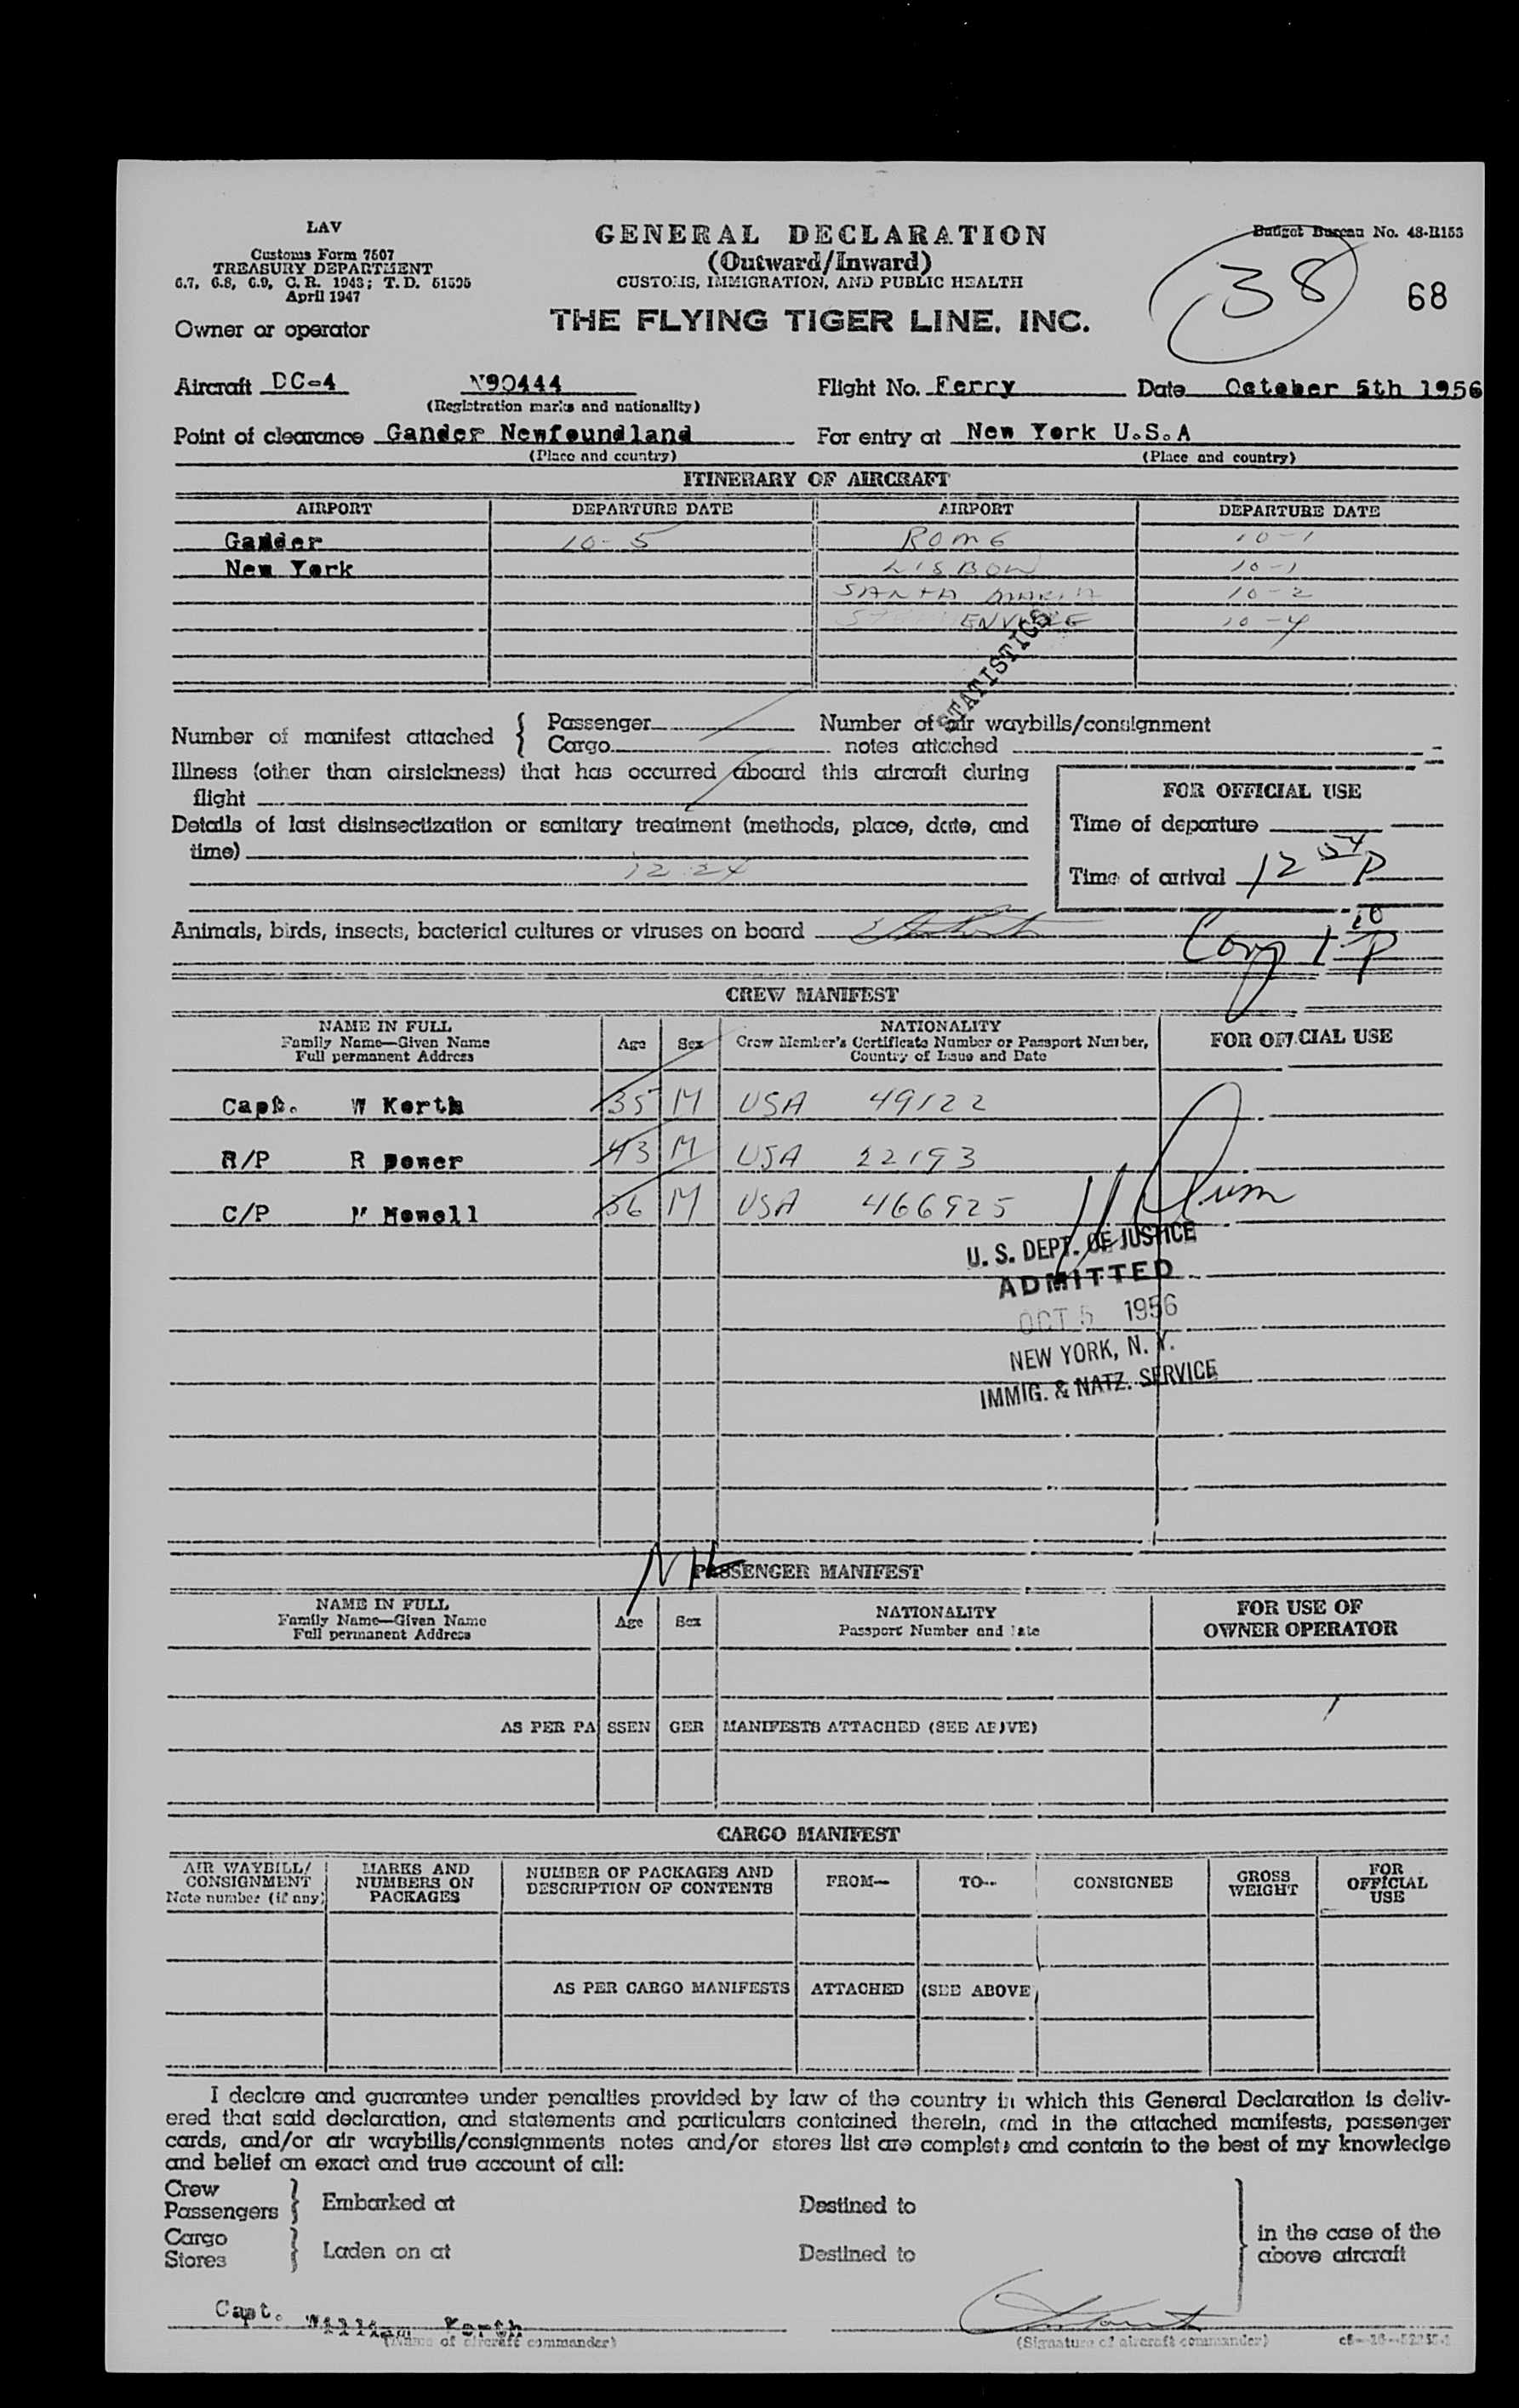 LAV
Customs Form 7507
TREASURY DEPARTMENT
6.7, 6.8, 6.9, C.R. 1943; T.D. 51595
April 1947
GENERAL DECLARATION
(Outward/Inward)
CUSTOMS, IMMIGRATION, AND PUBLIC HEALTH
Budget Bureau No. 48-R153
38
68
Owner or operator
THE FLYING TIGER LINE, INC.
Aircraft DC-4 N90444 Flight No. Ferry Date October 5th 1956
(Registration marks and nationality)
Point of clearance Gander Newfoundland For entry at New York U.S.A
(Place and country) (Place and country)
ITINERARY OF AIRCRAFT
AIRPORT DEPARTURE DATE AIRPORT DEPARTURE DATE
Gander 10-5 ROME 10-1
New York LISBON 10-1
SANTA MARIA 10-2
10-4
STATISTICS
Number of manifest attached { Passenger Number of air waybills/consignment
Cargo notes attached
Illness (other than airsickness) that has occurred aboard this aircraft during
flight
FOR OFFICIAL USE
Details of last disinsectization or sanitary treatment (methods, place, date, and
time)
Time of departure
12 24
Time of arrival 12 54 P
Animals, birds, insects, bacterial cultures or viruses on board
1 10 P
CREW MANIFEST
NAME IN FULL
Family Name—Given Name
Full permanent Address
Age Sex
NATIONALITY
Crew Member's Certificate Number or Passport Number,
Country of Issue and Date
FOR OFFICIAL USE
Capt. W Korth 35 M USA 49122
R/P R Dower 43 M USA 22193
C/P M Newell 36 M USA 466925
U. S. DEPT. OF JUSTICE
ADMITTED
OCT 5 1956
NEW YORK, N. Y.
IMMIG. & NATZ. SERVICE
NIL
PASSENGER MANIFEST
NAME IN FULL
Family Name—Given Name
Full permanent Address
Age Sex
NATIONALITY
Passport Number and Date
FOR USE OF
OWNER OPERATOR
AS PER PASSENGER MANIFESTS ATTACHED (SEE ABOVE)
CARGO MANIFEST
AIR WAYBILL/
CONSIGNMENT
Note number (if any)
MARKS AND
NUMBERS ON
PACKAGES
NUMBER OF PACKAGES AND
DESCRIPTION OF CONTENTS
FROM— TO— CONSIGNEE
GROSS
WEIGHT
FOR
OFFICIAL
USE
AS PER CARGO MANIFESTS ATTACHED (SEE ABOVE)
I declare and guarantee under penalties provided by law of the country in which this General Declaration is deliv-
ered that said declaration, and statements and particulars contained therein, and in the attached manifests, passenger
cards, and/or air waybills/consignments notes and/or stores list are complete and contain to the best of my knowledge
and belief an exact and true account of all:
Crew
Passengers } Embarked at Destined to
Cargo
Stores } Laden on at Destined to
in the case of the
above aircraft
Capt. William Korth
(Name of aircraft commander) (Signature of aircraft commander)